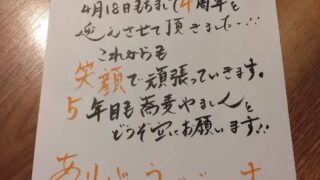 4月18日をもちまして4周年を
迎えさせて頂きました…!!
これからも
笑顔で頑張っていきます。
5年目も蕎麦やまし人を
どうぞ宜しくお願います!!
ありがとう